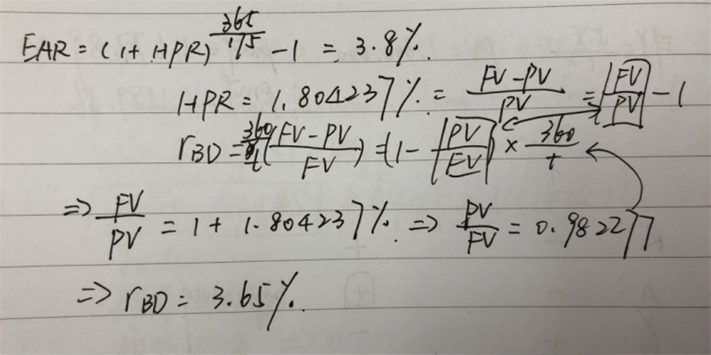 EAR = (1 + HPR)^(365/175) - 1 = 3.8%
HPR = 1.804237% = (FV - PV)/PV = FV/PV - 1
rBD = 360/t (FV - PV / FV) = (1 - PV/FV) × 360/t
⇒ FV/PV = 1 + 1.804237% ⇒ PV/FV = 0.982277
⇒ rBD = 3.65%